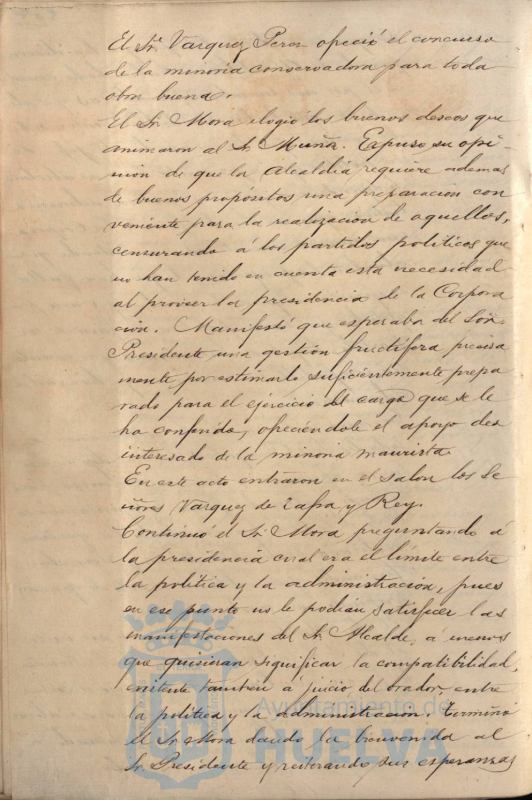 El Sr. Vazquez Perez ofreció el concurso
de la minoria conservadora para toda
obra buena.
El Sr. Mora elogió los buenos deseos que
animaron al Sr. Muñiz. Expuso su opi-
nión de que la Alcaldia requiere además
de buenos propósitos una preparación con
veniente para la realización de aquellos,
censurando á los partidos políticos que
no han tenido en cuenta esta necesidad
al proveer la presidencia de la Corpora
ción. Manifestó que esperaba del Señor
Presidente una gestión fructífera precisa
mente por estimarlo suficientemente prepa
rado para el ejercicio del cargo que se le
ha conferido, ofreciéndole el apoyo des
interesado de la minoria maurista.
En este acto entraron en el salon los Se
ñores Vazquez de Zafra y Rey.
Continuó el Sr. Mora preguntando á
la presidencia cual era el límite entre
la política y la administración, pues
en ese punto no le podian satisfacer las
manifestaciones del Sr. Alcalde, a menos
que quisieran significar la compatibilidad,
existente tambien á juicio del orador, entre
la política y la administracion. Terminó
el Sr. Mora dando la bienvenida al
Sr. Presidente y reiterando sus esperanzas
Ayuntamiento de
HUELVA